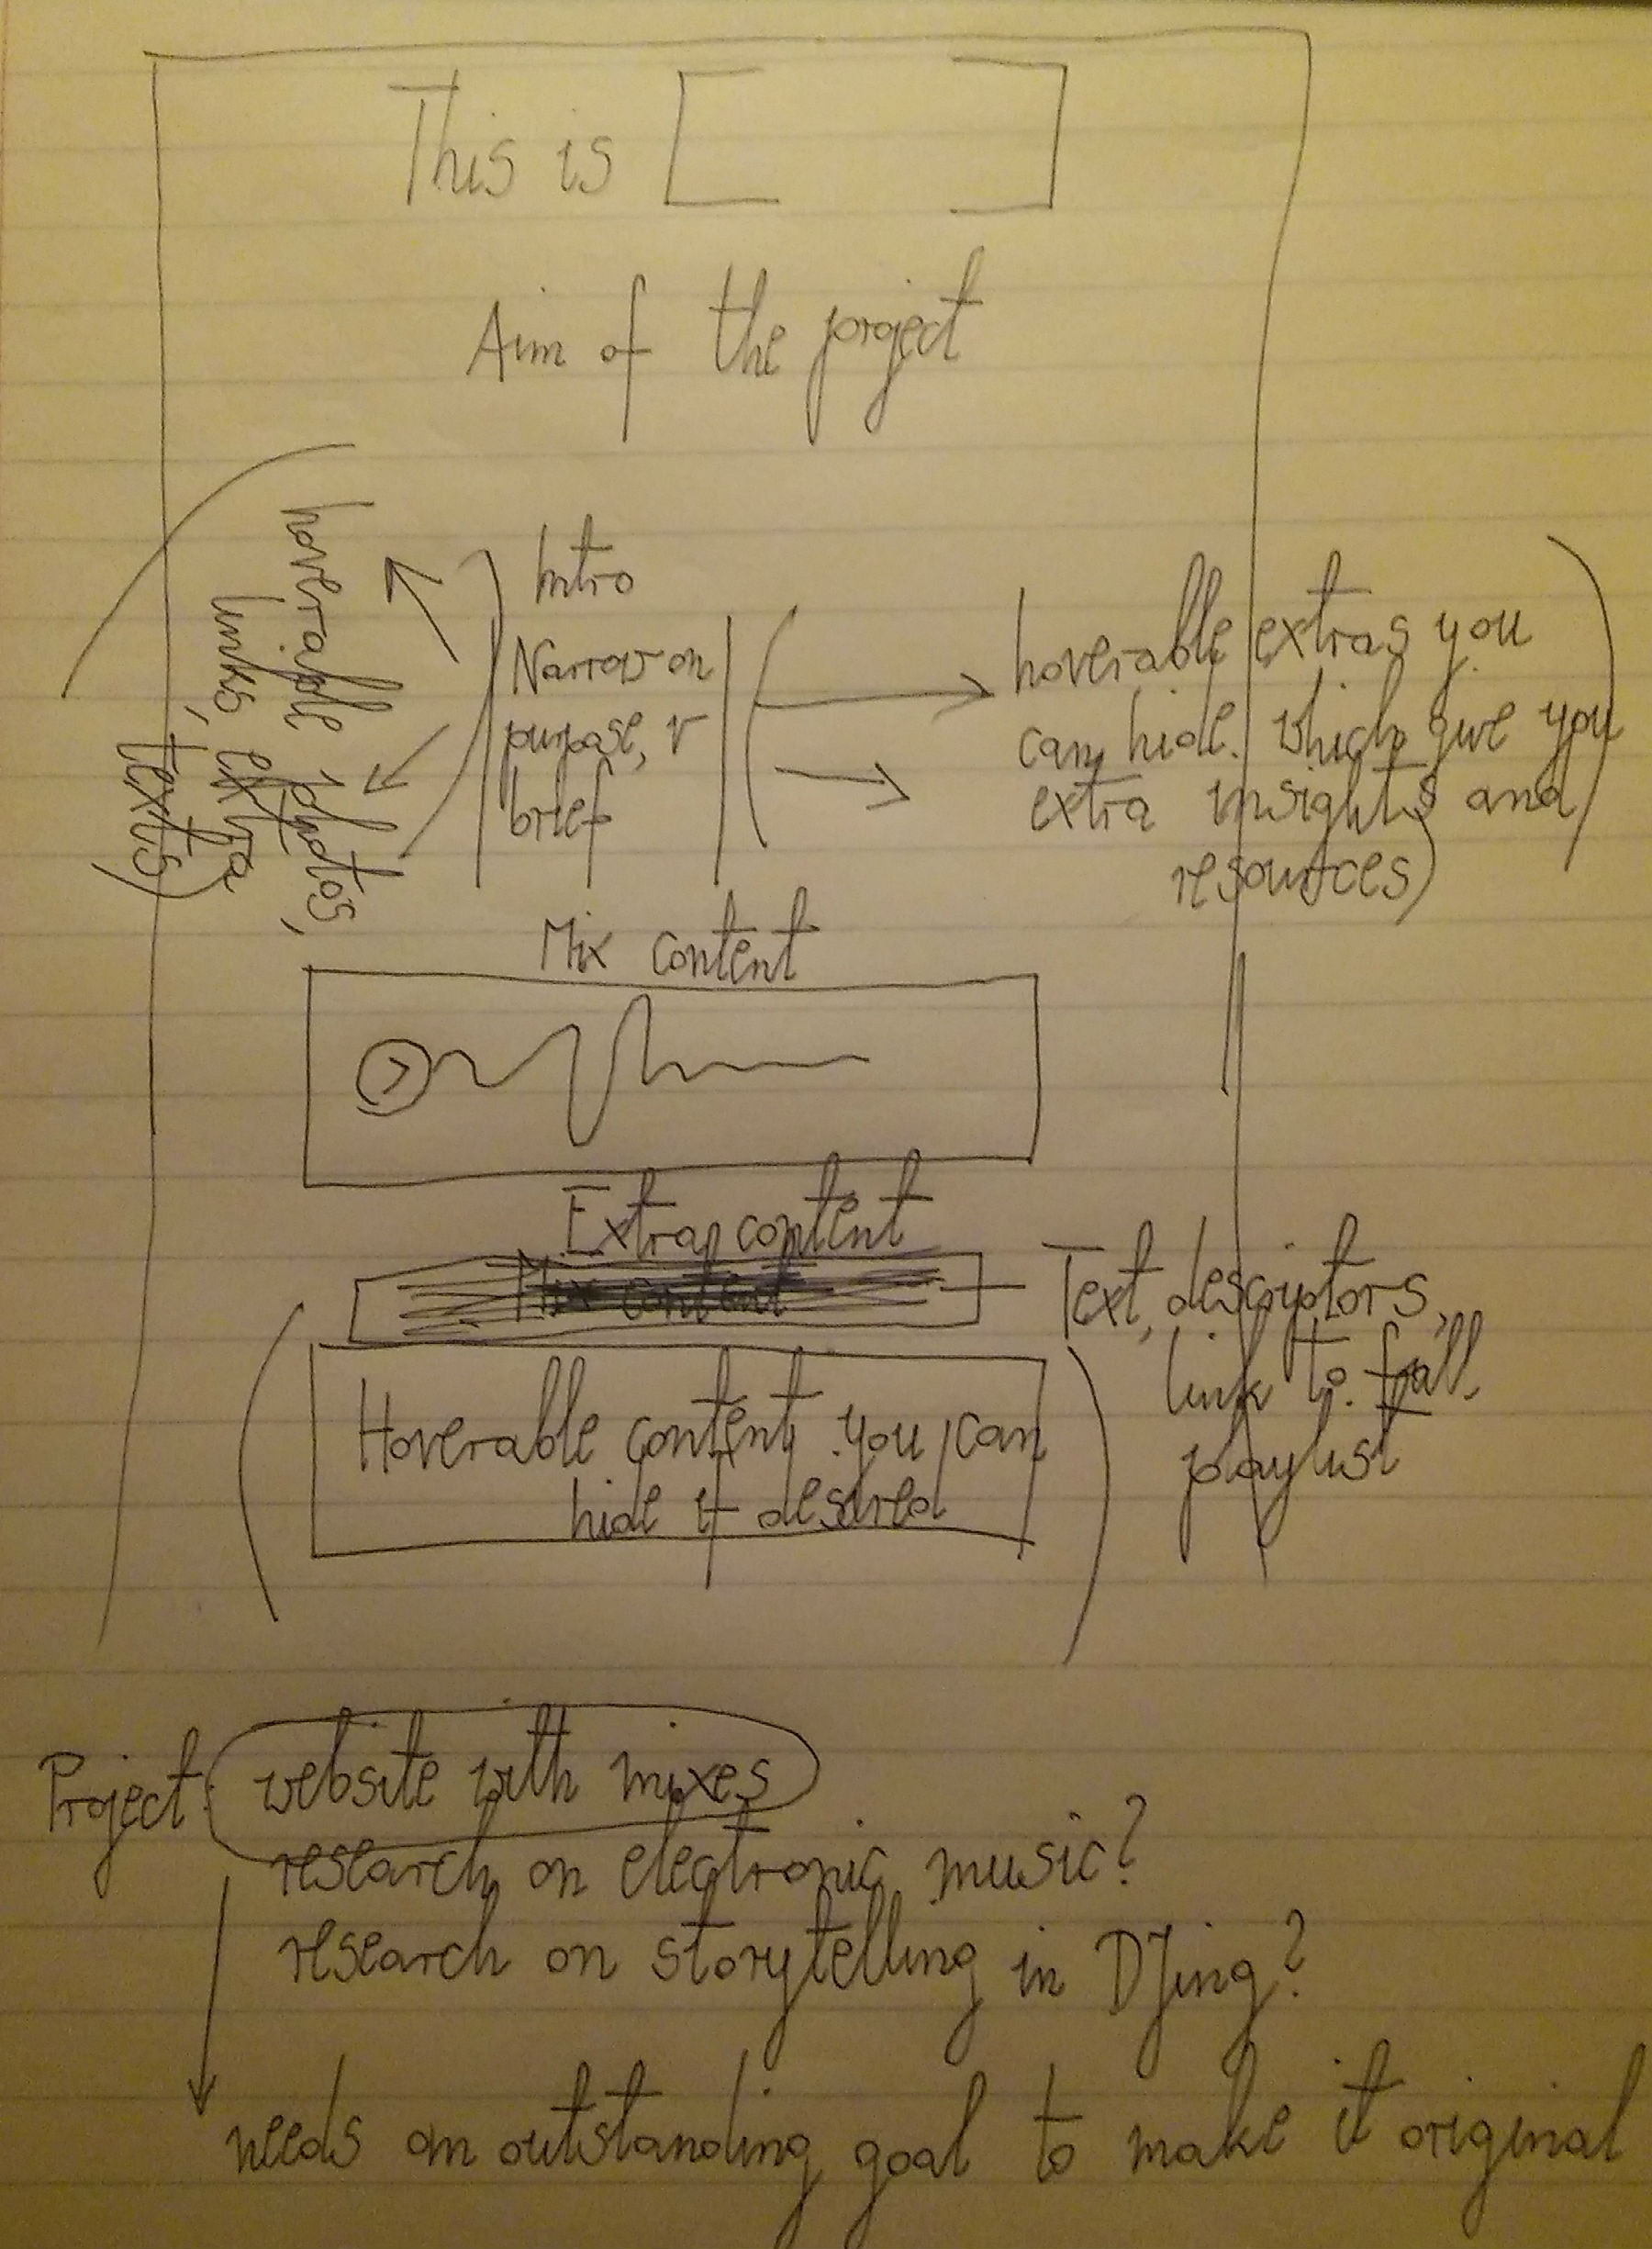 This is [ ]
Aim of the project
hoverable photos,
links, extra
texts)
Intro
Narrow on
purpose, v
brief
hoverable extras you
can hide. which give you
extra insights and
resources)
Mix content
Extra content
Mix content
Text, descriptors,
link to full
playlist
Hoverable content you can
hide if desired
Project: website with mixes
research on electronic music?
research on storytelling in DJing?
needs an outstanding goal to make it original